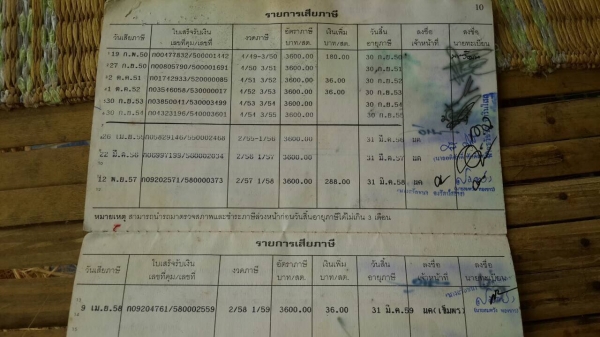 รายการเสียภาษี 10
วันเสียภาษี ใบเสร็จรับเงิน เลขที่คุม/เลขที่ งวดภาษี อัตราภาษี บาท/สต. เงินเพิ่ม บาท/สต. วันสิ้น อายุภาษี ลงชื่อ เจ้าหน้าที่ ลงชื่อ นายทะเบียน
19 ก.พ.50 ก00477832/500001442 4/49-3/50 3600.00 180.00 30 ก.ย.50
27 ก.ย.50 ก00805790/500001691 4/50 3/51 3600.00 30 ก.ย.51
2 ต.ค.51 ก01742933/520000085 4/51 3/52 3600.00 36.00 30 ก.ย.52
1 ต.ค.52 ก03546058/530000017 4/52 3/53 3600.00 36.00 30 ก.ย.53
30 ก.ย.53 ก03850041/530003499 4/53 3/54 3600.00 30 ก.ย.54
30 ก.ย.54 ก04323196/540003601 4/54 3/55 3600.00 30 ก.ย.55
เม.ย.56 2/55-1/56 3600.00 31 มี.ค.56 มค
22 มี.ค.56 2/56 1/57 3600.00 31 มี.ค.57 มค
12 พ.ย.57 ก09202571/580000373 2/57 1/58 3600.00 288.00 31 มี.ค.58 มค
หมายเหตุ สามารถนำรถมาตรวจสภาพและชำระภาษีล่วงหน้าก่อนวันสิ้นอายุภาษีได้ไม่เกิน 3 เดือน
รายการเสียภาษี
วันเสียภาษี ใบเสร็จรับเงิน เลขที่คุม/เลขที่ งวดภาษี อัตราภาษี บาท/สต. เงินเพิ่ม บาท/สต. วันสิ้น อายุภาษี ลงชื่อ เจ้าหน้าที่ ลงชื่อ นายทะเบียน
9 เม.ย.58 ก09204761/580002559 2/58 1/59 3600.00 36.00 31 มี.ค.59